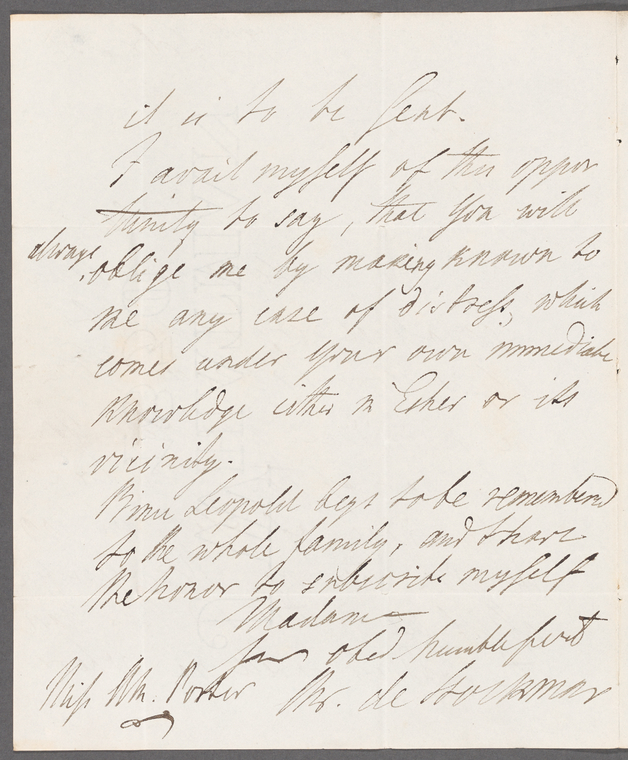 it is to be sent.
I avail myself of this oppor
tunity to say, that you will
always oblige me by making known to
me any case of distress, which
comes under your own immediate
knowledge either in Esher or its
vicinity.
Prince Leopold begs to be remembered
to the whole family, and I have
the honor to subscribe myself
Madam
your obed humble servt
Miss Porter Chr. de Stockmar